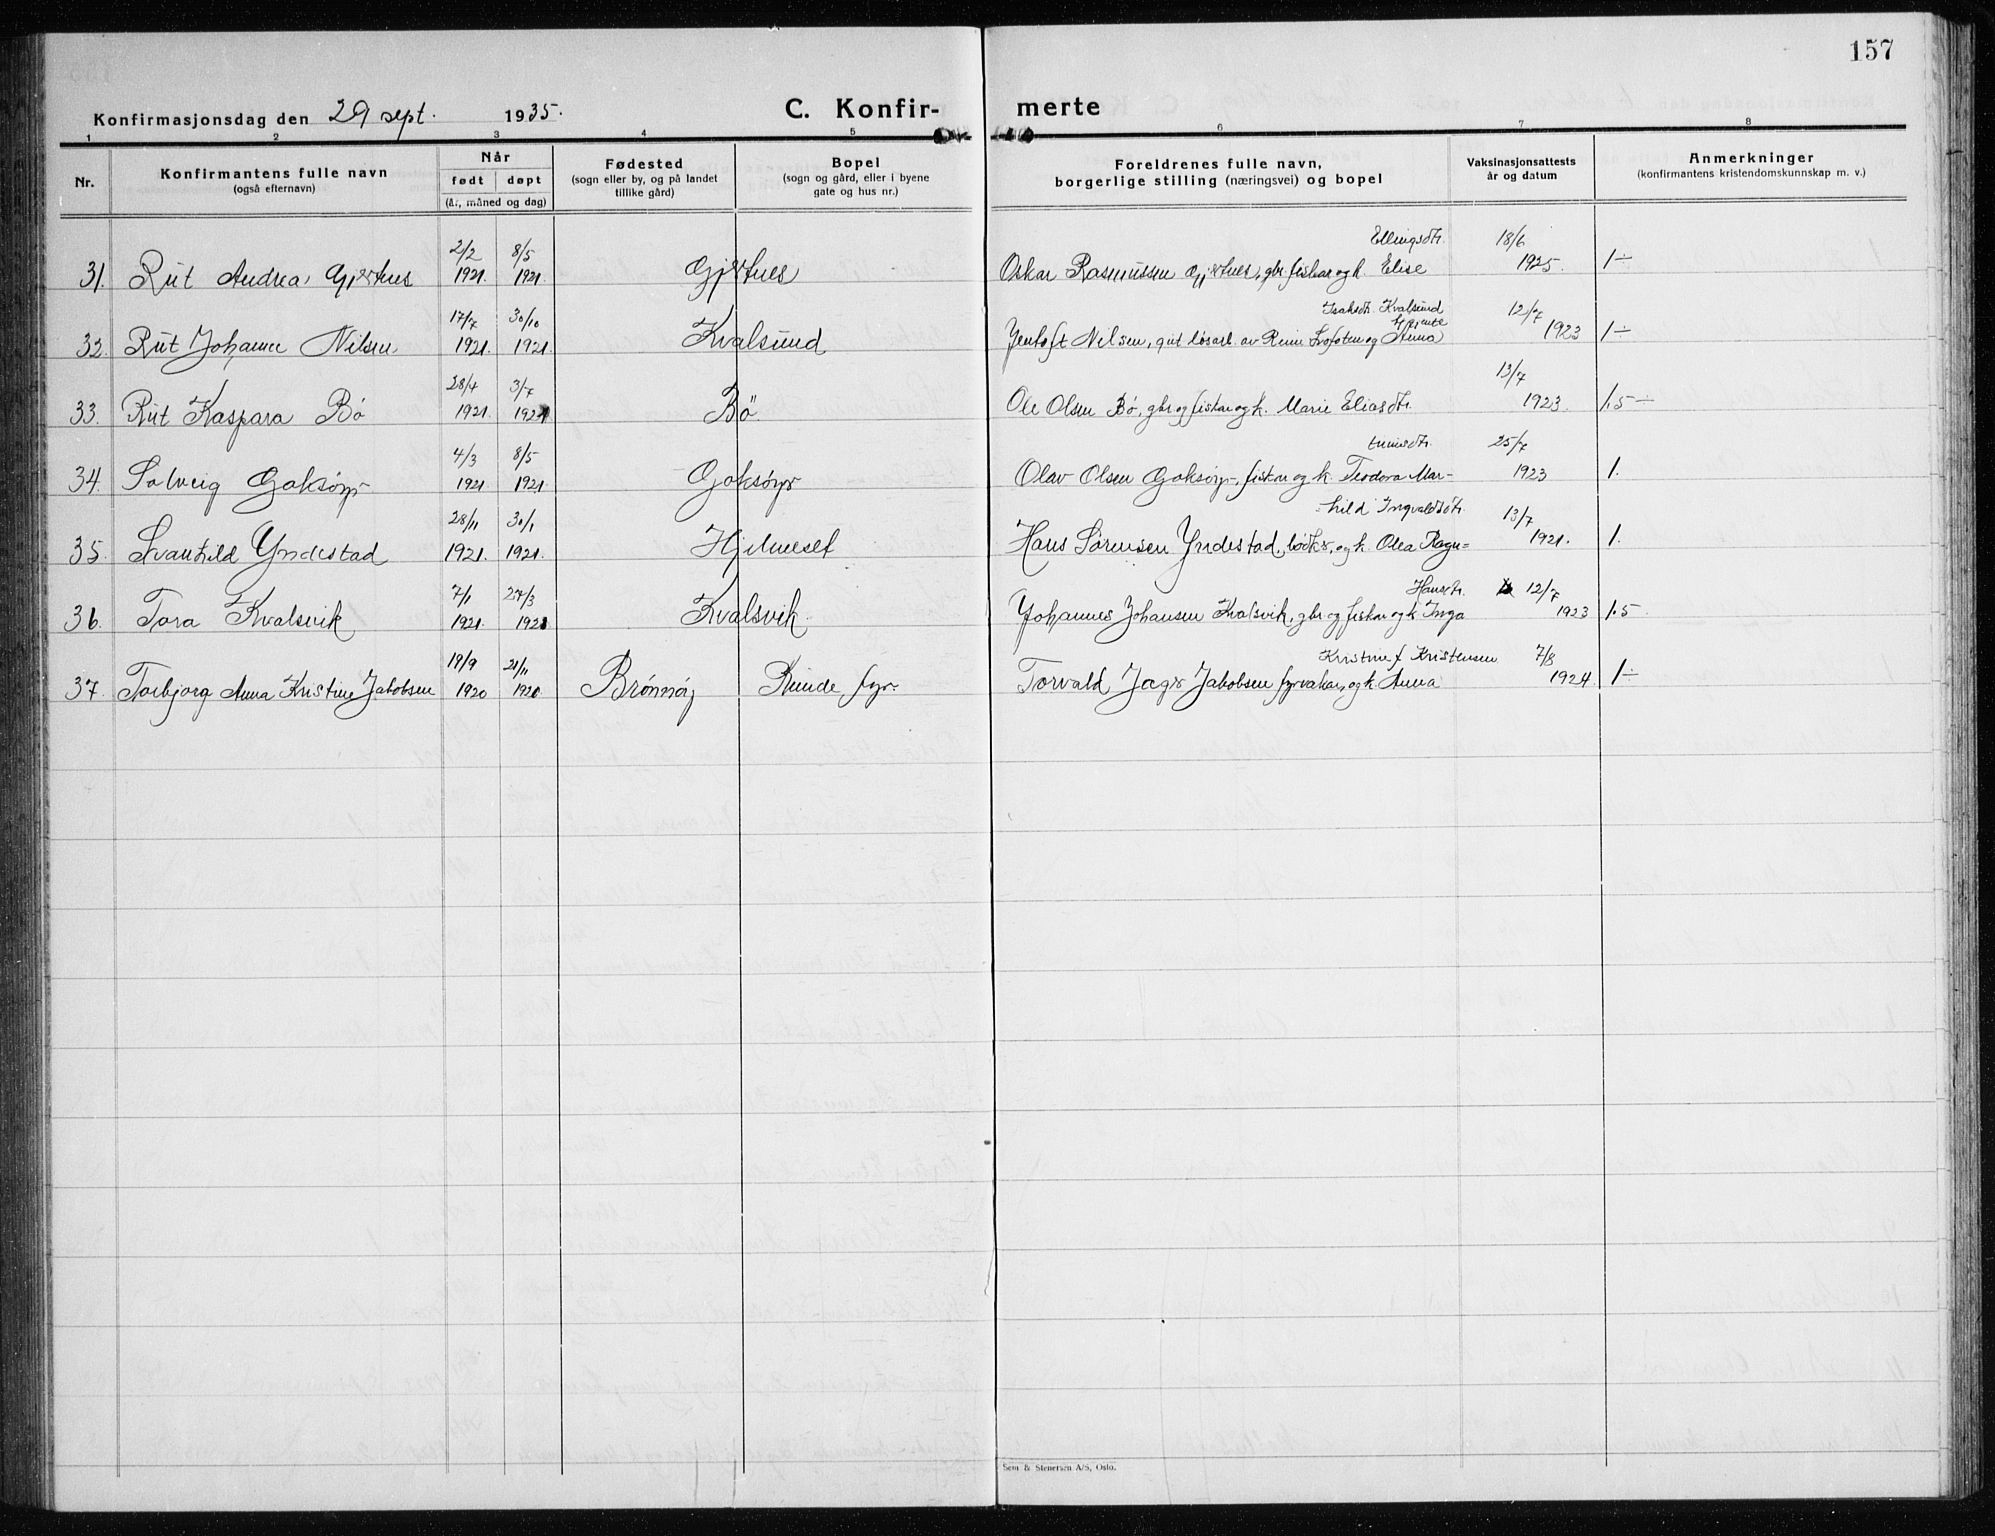 157
Konfirmasjonsdag den 29 sept. 1935.
C. Konfir-
merte
1 2 3 4 5 6 7 8
Nr.
Konfirmantens fulle navn
(også efternavn)
Når
født døpt
(år, måned og dag)
Fødested
(sogn eller by, og på landet
tillike gård)
Bopel
(sogn og gård, eller i byene
gate og hus nr.)
Foreldrenes fulle navn,
borgerlige stilling (næringsvei) og bopel
Vaksinasjonsattests
år og datum
Anmerkninger
(konfirmantens kristendomskunnskap m. v.)
2/2 8/5 Ellingsdtr. 18/6
31. Rut Andrea Gjertnes 1921. 1921. Gjertnes Oskar Rasmussen Gjertnes, gbr. fiskar og k. Elise 1925. 1÷
17/7 30/10 Isaksdtr. Kvalsund 12/7
32. Rut Johanne Nilsen 1921. 1921. Kvalsund Jentoft Nilsen, gift løsarb. av Reine Lofoten og Anna 1923 1÷
28/4 3/7 13/7
33. Rut Kaspara Bø 1921. 1921 Bø. Ole Olsen Bø, gbr og fiskar og k. Marie Eliasdtr. 1923. 1.5 ÷
4/3 8/5 tinusdtr. 25/7
34. Solveig Goksøyr 1921 1921. Goksøyr Olav Olsen Goksøyr, fiskar og k. Teodora Mar- 1923 1.
28/11 30/1 hild Ingvaldsdtr. 13/7
35. Svanhild Yndestad 1921. 1921. Hjelmeset Hans Sørensen Yndestad, bødker, og k. Olea Ragn= 1921. 1.
7/1 27/3 Hansdtr. 12/7
36. Tora Kvalsvik 1921. 1921 Kvalsvik. Johannes Johansen Kvalsvik, gbr og fiskar og k Inga 1923 1.5
19/9 21/11 Kristine f Kristensen 7/8
37. Torbjørg Anna Kristine Jakobsen 1920 1920 Brønnøy Runde fyr. Torvald Jager Jakobsen fyrvaktar, og k. Anna 1924. 1÷
Sem & Stenersen A/S, Oslo.